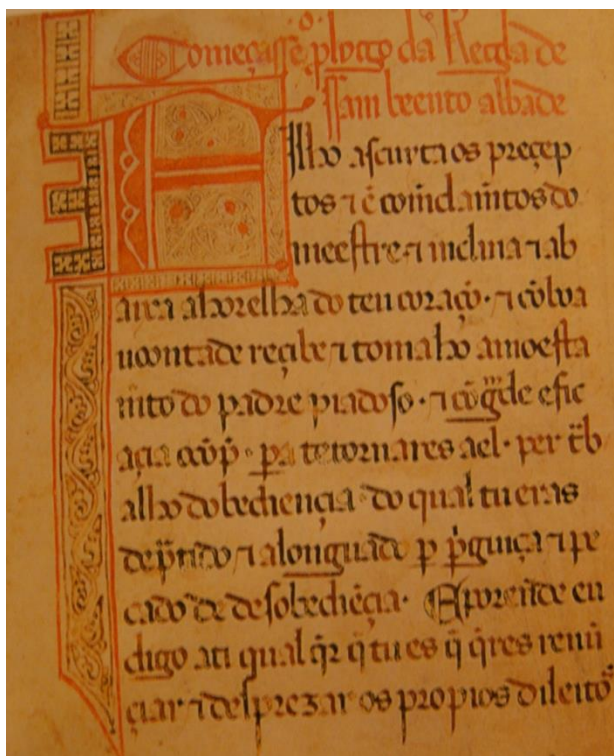 Começasse o plogo da Regla de
sam beento abbade
Filho ascuita os preçep
tos ⁊ ẽ comẽdamẽtos do
meestre ⁊ inclina ⁊ ab
aixa a horelha do teu coraçõ · ⁊ cõ bõa
uoontade reçibe ⁊ toma ho amoesta
mẽto do padre piadoso · ⁊ cõ grãde efic
açia cõp · pa te tornares a el · per trab
alho dobediençia · do qual tu eras
deptido ⁊ alonguado p pguiça ⁊ pe
cado de desobediẽçia · E porende eu
digo a ti qual qr q̃ tu es q̃ q̃res renũ
çiar ⁊ desprezar os propios dileitos